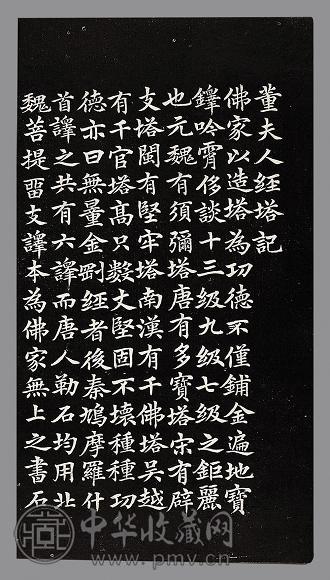 董夫人经塔記
佛家以造塔為功德不僅鋪金遍地寶
鐸吟霄侈談十三级九级七级之鉅麗
也元魏有須彌塔唐有多寶塔宋有辟
支塔閩有堅牢塔南漢有千佛塔吴越
有千官塔髙只數丈堅固不壞種種功
德亦曰無量金剛经者後秦鳩摩羅什
首譯之共有六譯而唐人勒石均用北
魏菩提畱支譯本為佛家無上之書石
中华收藏网
www.pmv.cn